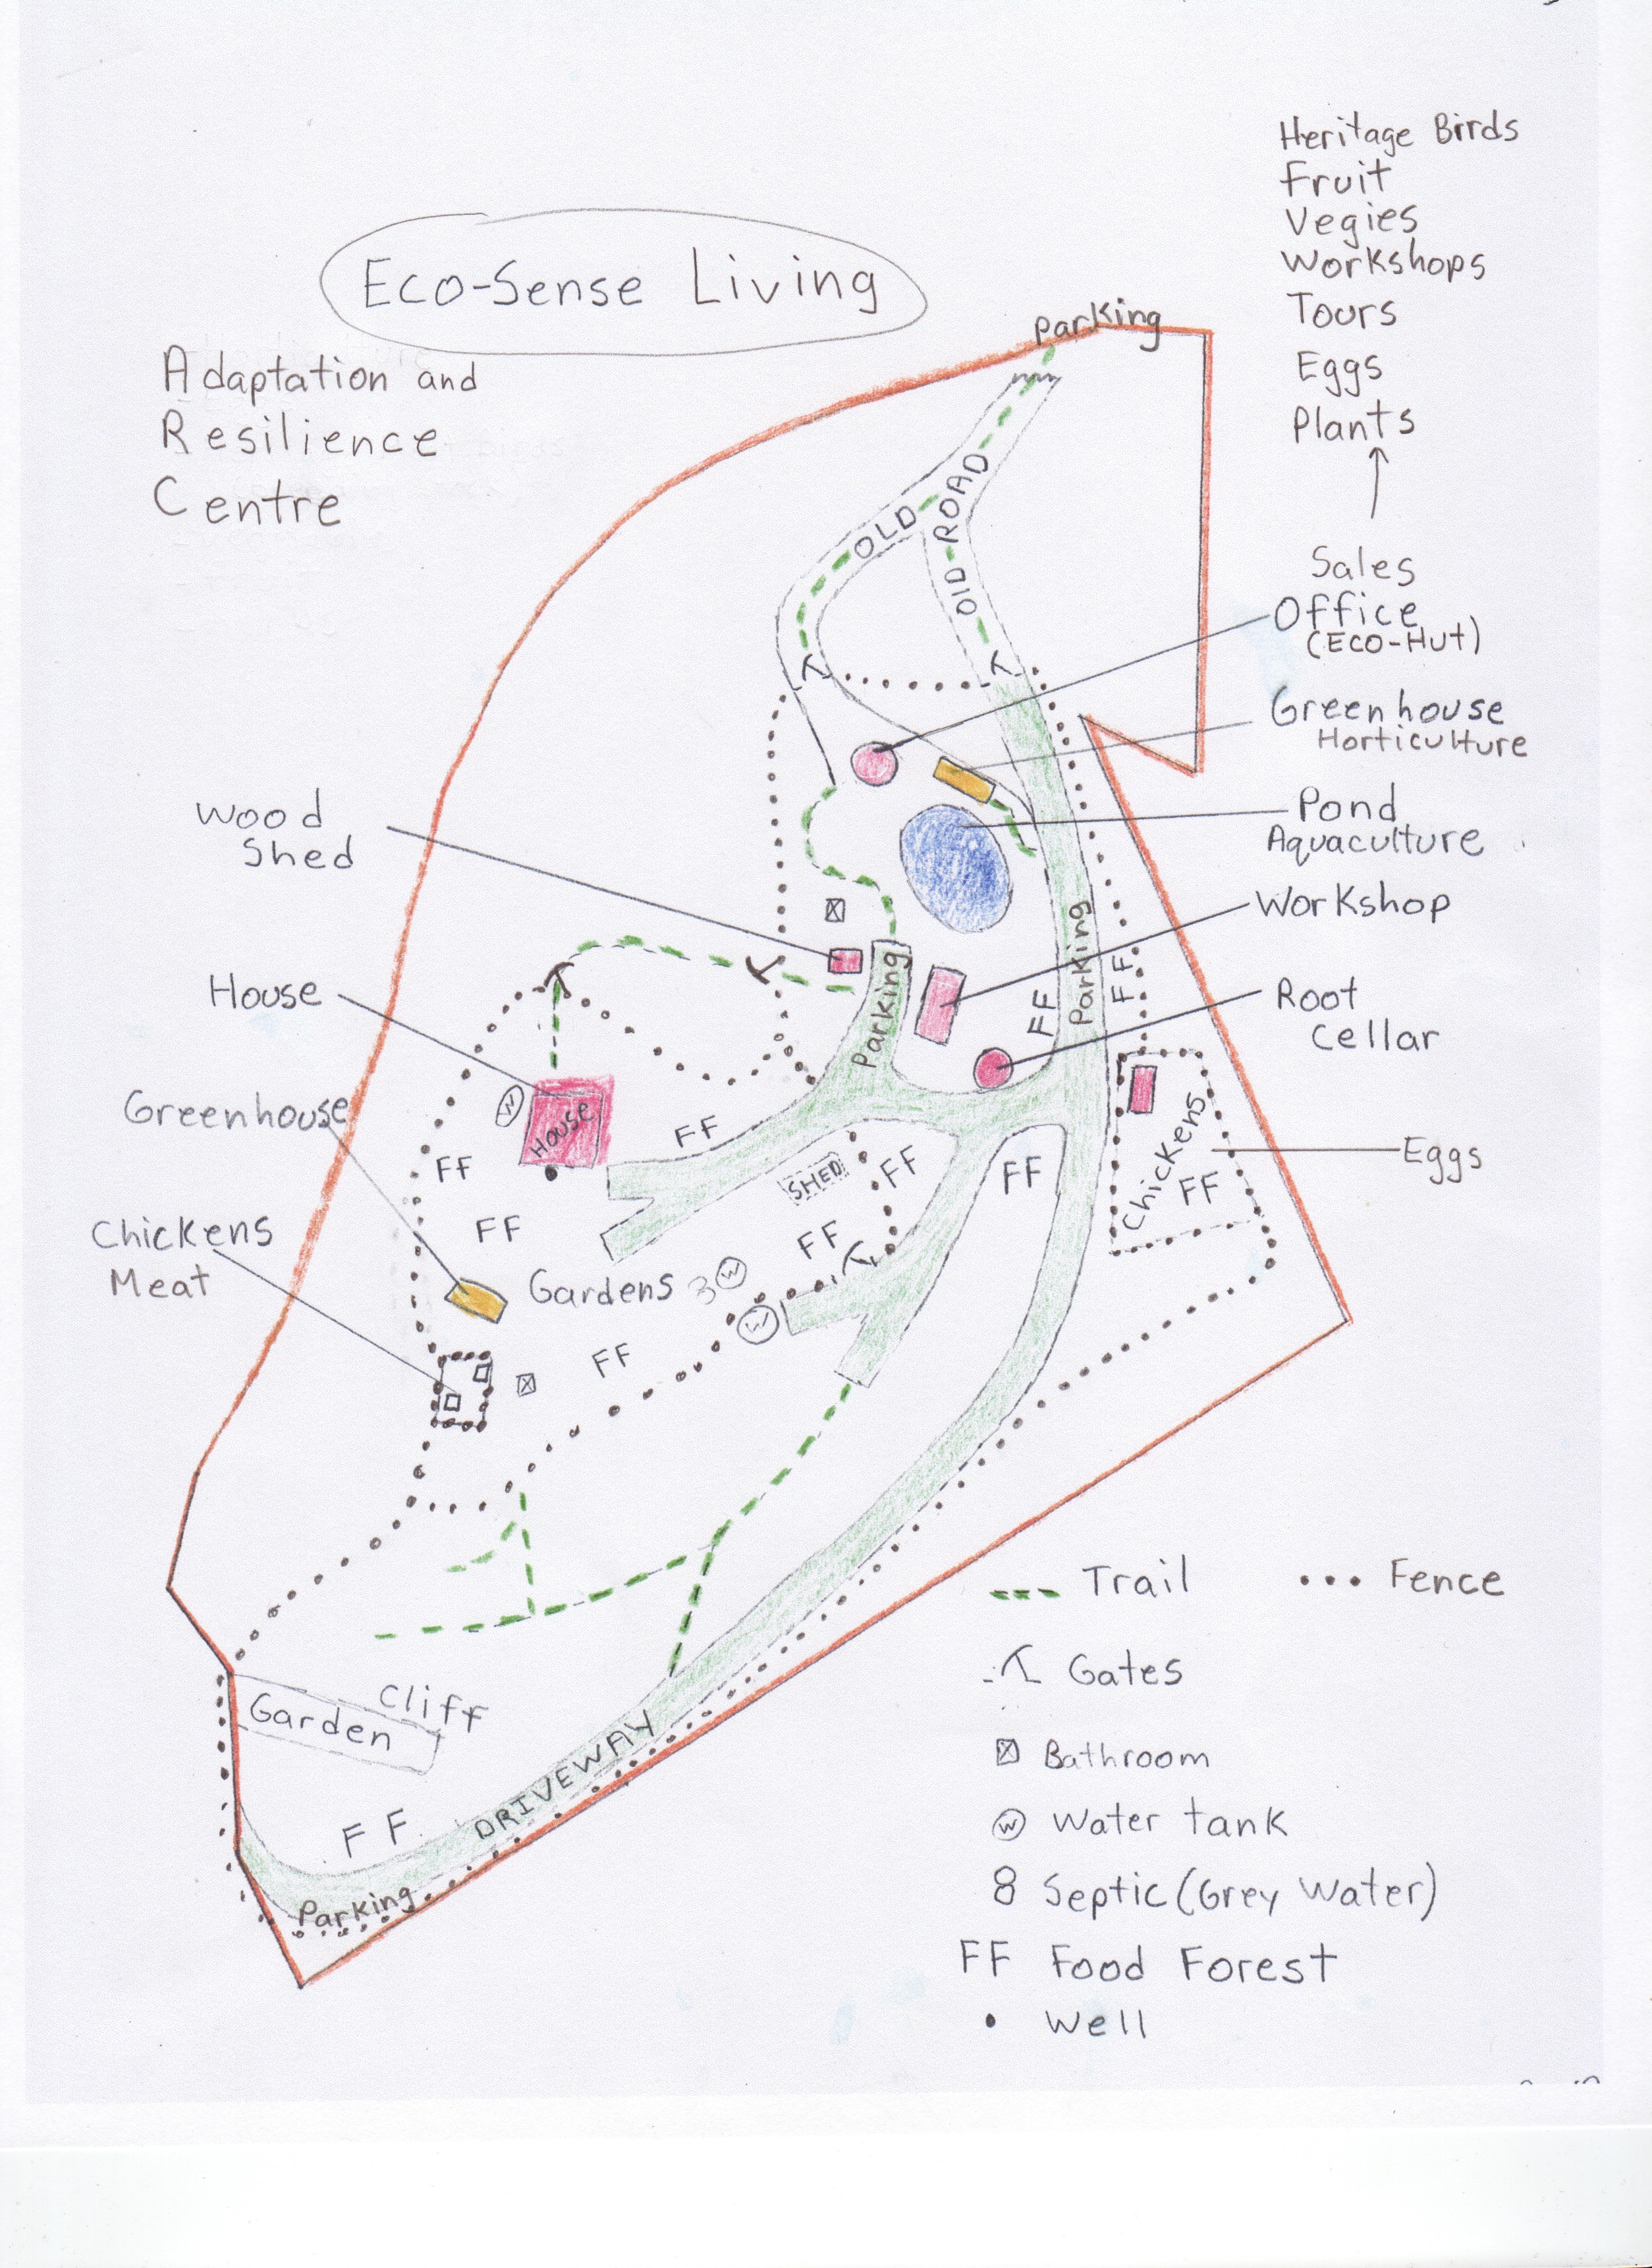 Heritage Birds
Fruit
Vegies
Workshops
Tours
Eggs
Plants
Sales
Office
(Eco-Hut)
Eco-Sense Living
Adaptation and
Resilience
Centre
Parking
OLD ROAD
OlD
Greenhouse
Horticulture
Pond
Aquaculture
Wood
Shed
Workshop
House
Root
Cellar
Parking
Parking
FF
FF
Greenhouse
W
House
FF
FF
SHED
FF
FF
Chickens
FF
Eggs
FF
FF
Chickens
Meat
Gardens 3 W
W
FF
Trail
Fence
Gates
Bathroom
W Water tank
8 Septic (Grey Water)
FF Food Forest
Well
Cliff
Garden
FF
DRIVEWAY
Parking